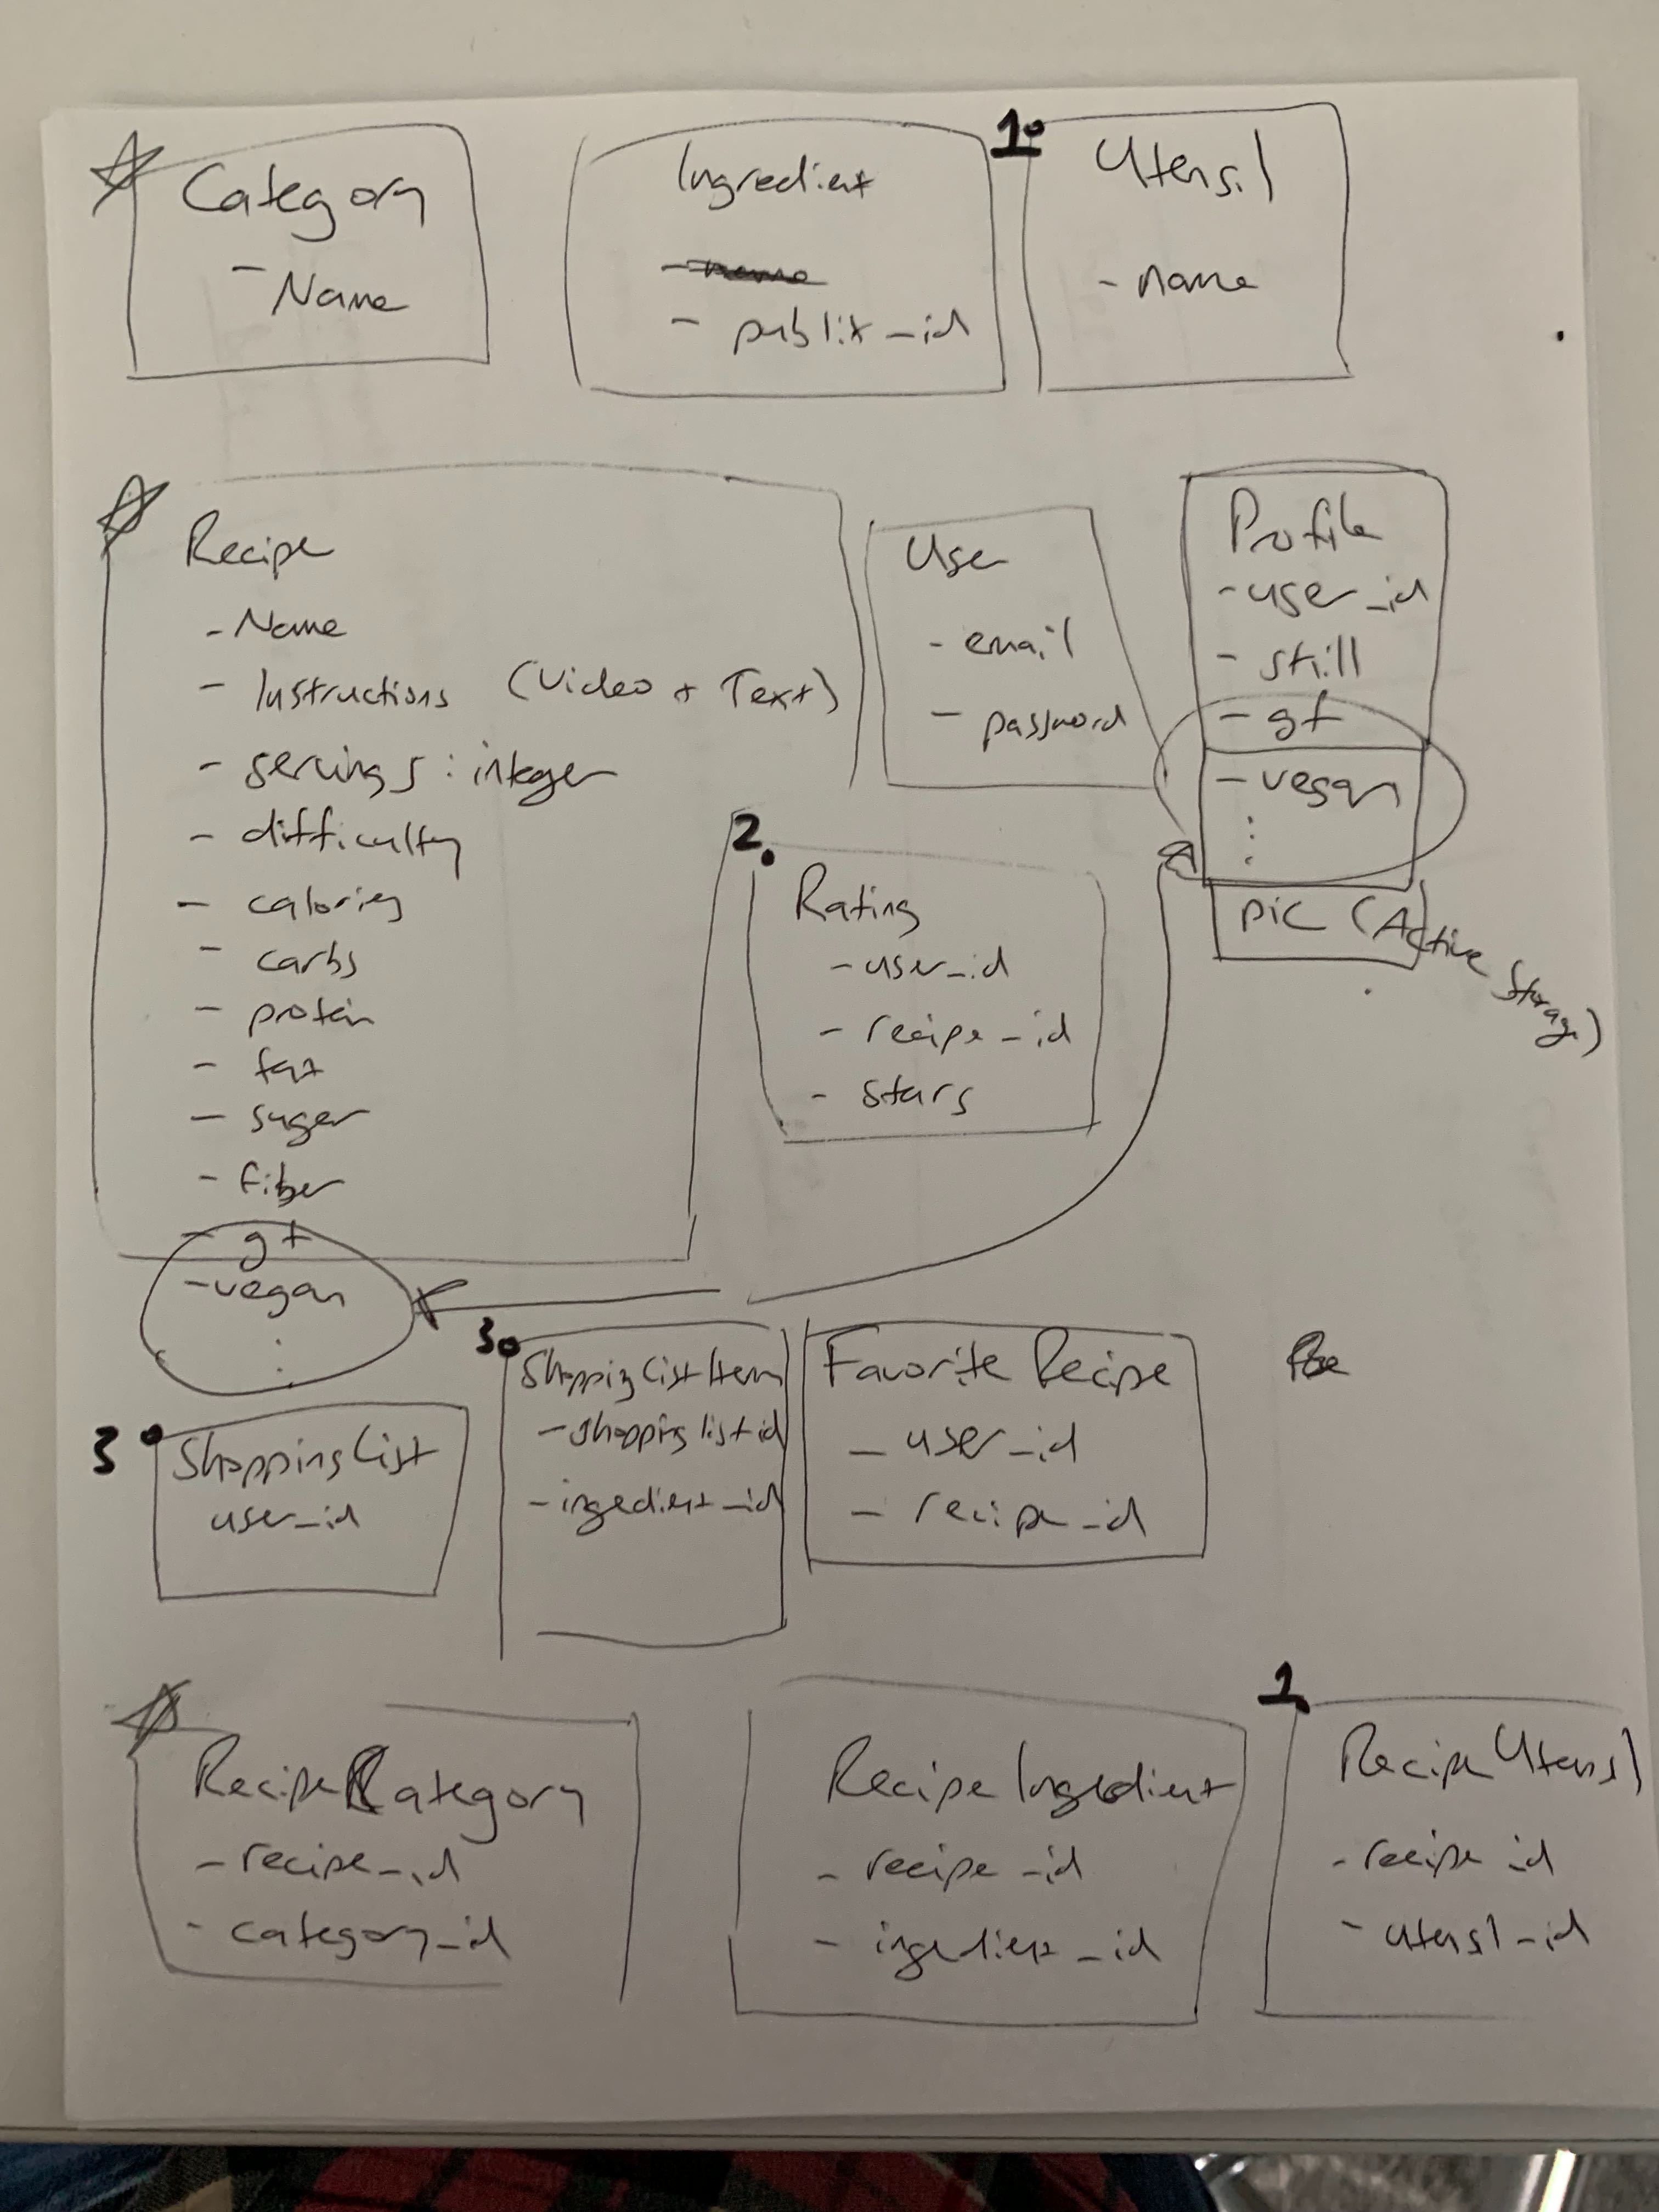 Category
- Name
Ingredient
- name
- publix_id
1.
Utensil
- name
Recipe
- Name
- Instructions (Video + Text)
- servings : integer
- difficulty
- calories
- carbs
- protein
- fat
- suger
- fiber
- gf
- vegan
User
- email
- password
Profile
- user_id
- skill
- gf
- vegan
pic (Active Storage)
2.
Rating
- user_id
- recipe_id
- stars
3.
ShoppingList
user_id
3.
ShoppingListItem
- shoppinglistid
- ingedient_id
Favorite Recipe
- user_id
- recipe_id
RecipeCategory
- recipe_id
- category_id
Recipe Ingredient
- recipe_id
- ingedient_id
1.
Recipe Utensil
- recipe_id
- utensil_id